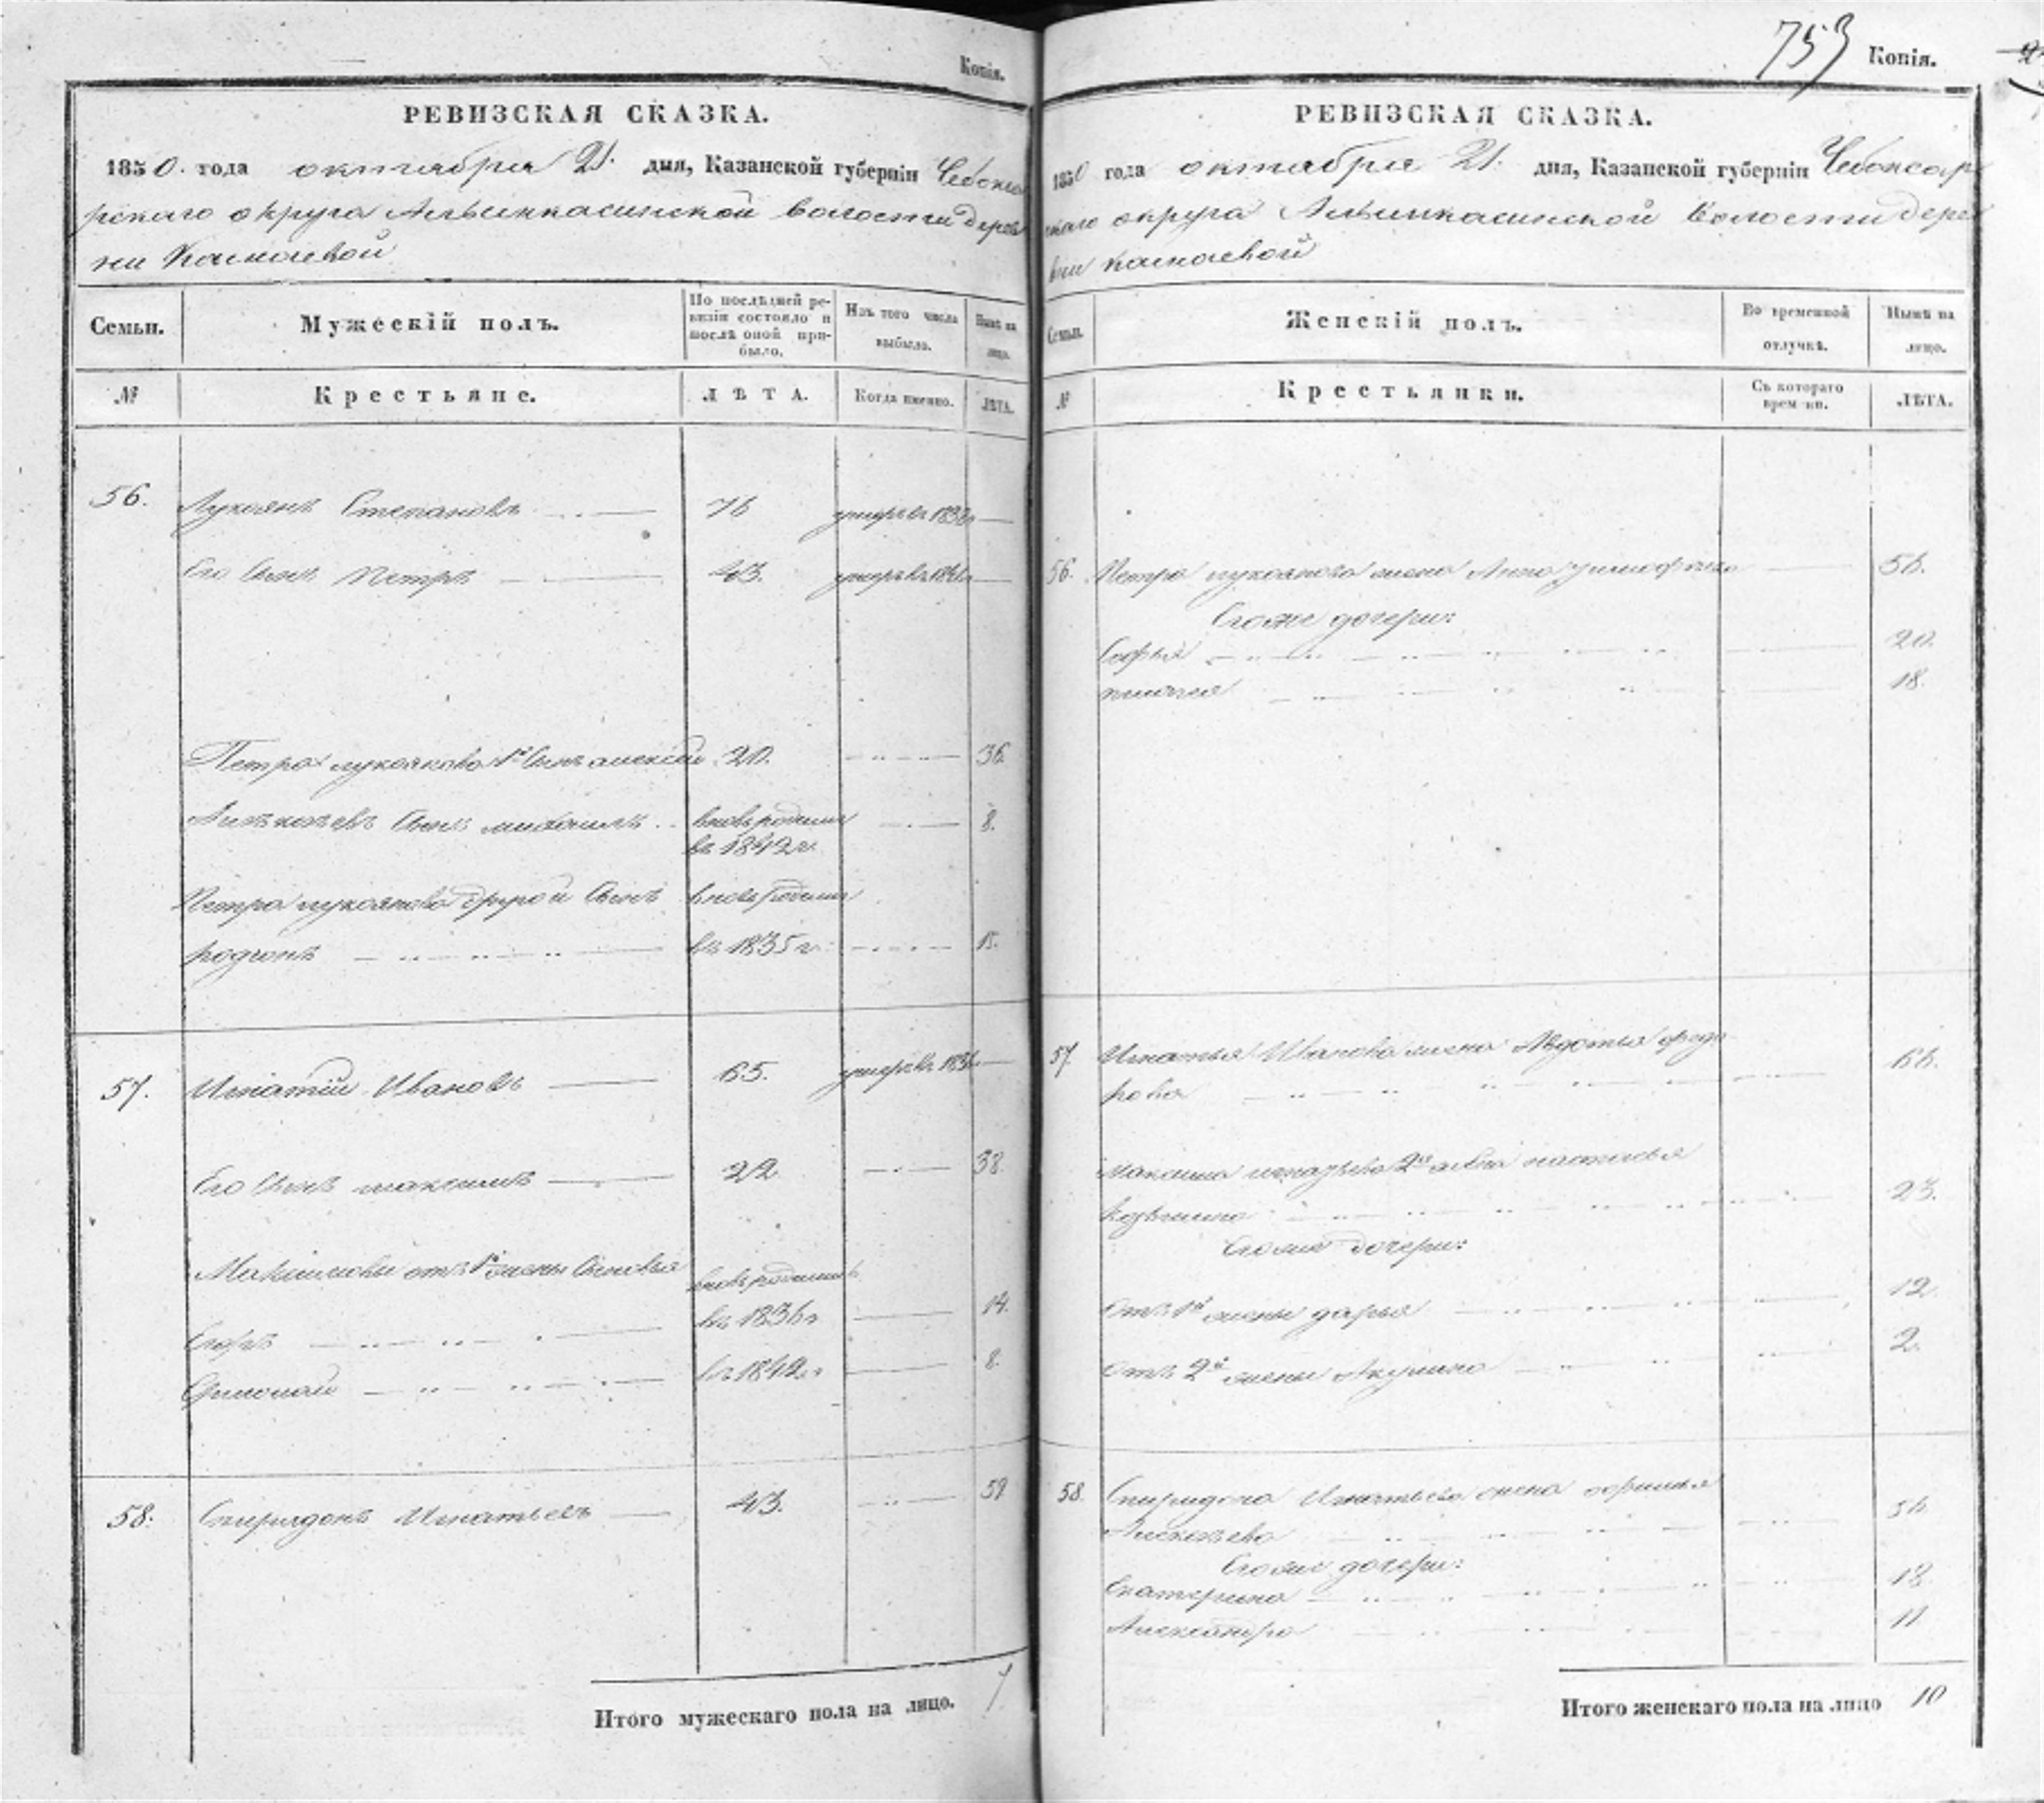 Копія.
РЕВИЗСКАЯ СКАЗКА.
1850. года октября 21. дня, Казанской губерніи Чебокса
рскаго округа волости дерев
ни
Семьи.
Мужескій полъ.
По послѣдней ре-
визіи состояло и
послѣ оной при-
было.
Изъ того числа
выбыло.
Нынѣ на
лицо.
№
Крестьяне.
ЛѢТА.
Когда именно.
ЛѢТА.
56.
Лукоянъ Степановъ
76
умеръ въ
Его Сынъ Петръ
43.
умеръ въ
Петра Лукоянова 1й Сынъ алексѣй
20.
36
Алексѣевъ Сынъ михаилъ
вновь рожденъ
въ 1842 г.
8.
Петра лукоянова другой Сынъ
вновь рожденъ
родіонъ
въ 1835 г.
15.
57.
Игнатій Ивановъ
65.
умеръ въ
Его Сынъ максимъ
22
38.
Максимовы отъ 1й жены Сыновья
вновь рожденъ
Егоръ
въ 1836 г
14.
въ 1842 г
8.
58.
Спиридонъ Игнатьевъ
43.
59
Итого мужескаго пола на лицо.
7
753
Копія.
РЕВИЗСКАЯ СКАЗКА.
1850 года октября 21. дня, Казанской губерніи Чебоксар
скаго округа волости дере
вни
Семьи.
Женскій полъ.
Во временной
отлучкѣ.
Нынѣ на
лицо.
№
Крестьянки.
Съ котораго
врем-ни.
ЛѢТА.
56.
Петра лукоянова жена Анна
56.
Его же дочери:
Софья
20.
18.
57.
Игнатья Иванова жена Авдотья федо
рова
66.
Максима игнатьева 2я жена настасья
Козьмина
23.
Его же дочери:
Отъ 1й жены дарья
12.
Отъ 2й жены Акулина
2.
58.
Спиридона Игнатьева жена
Алексѣева
Его же дочери:
Екатерина
18.
Александра
11
Итого женскаго пола на лицо
10